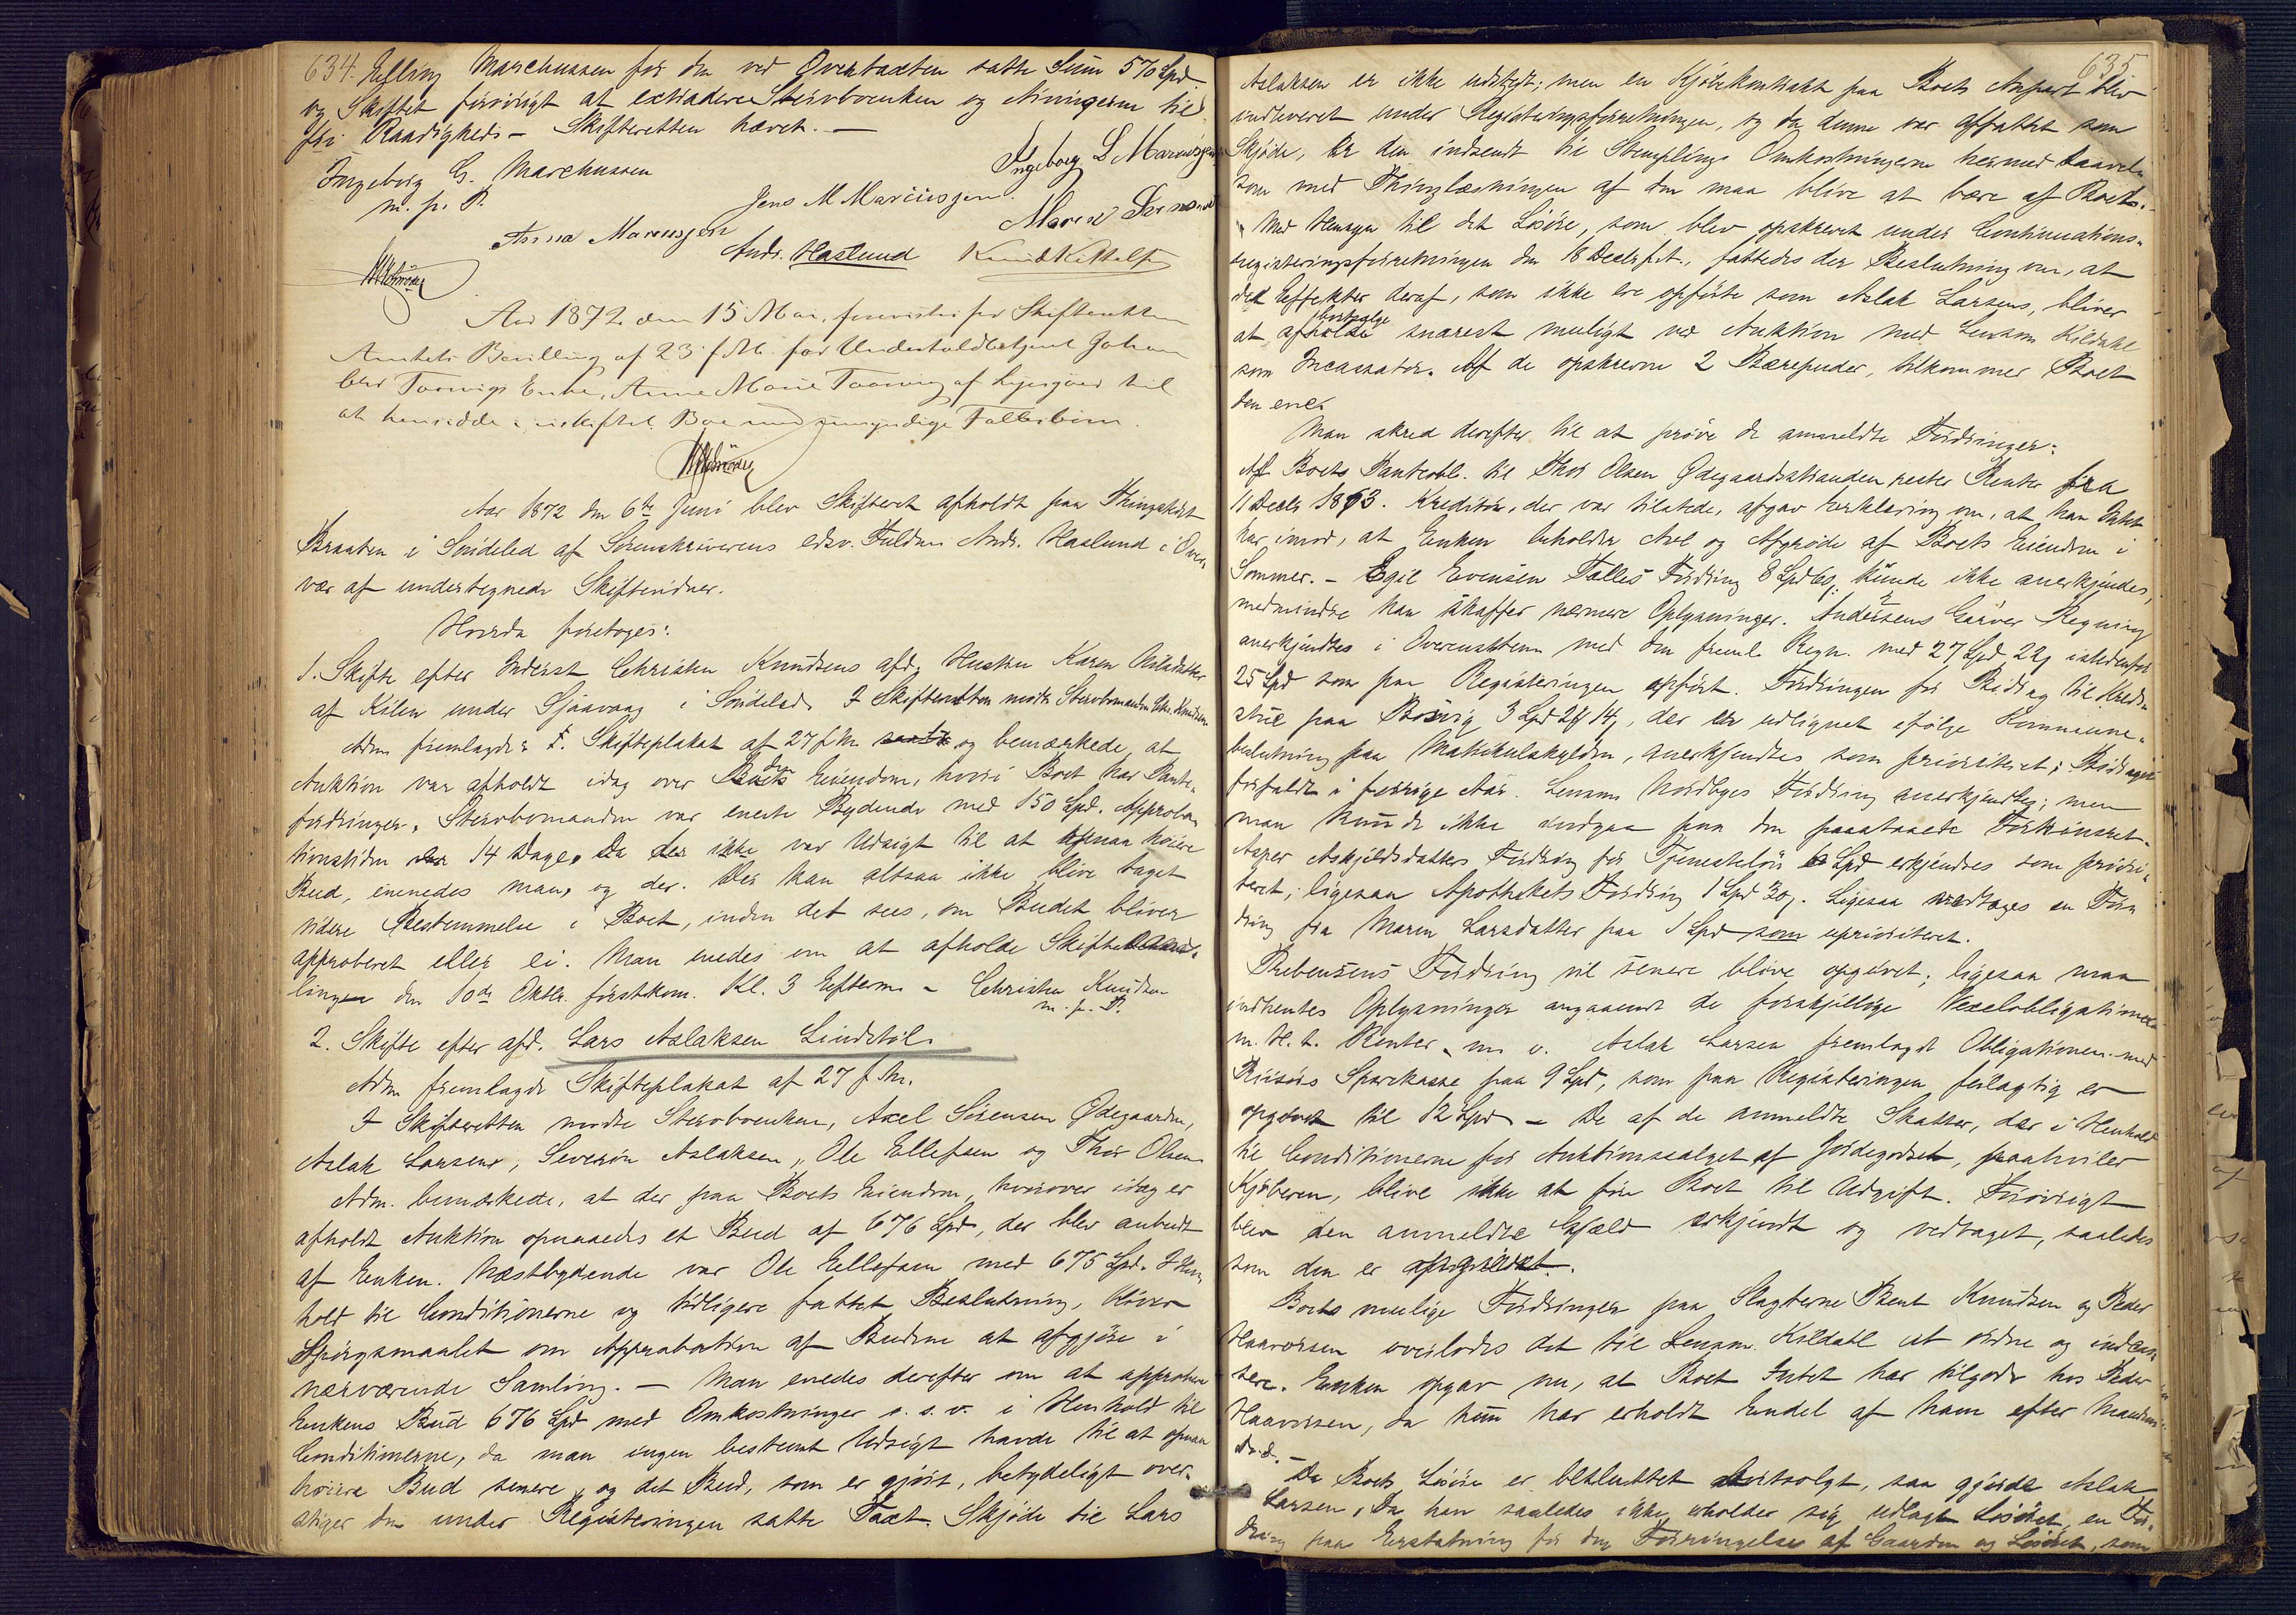 634. Efling Marchussen for den ved Overtaxten satte Sum 570 Spd.
og Skiftet forøvrigt at extradere Stervboenken og Arvingerne til
fri Raadighed. – Skifteretten hævet. –
Ingeborg G. Marchussen
m. p. P.
Ingeborg L Marcusjen
Jens M Marcusjen.
Anna Marcusjen
Maren
Andr. Haslund
Aar 1872 den 15 Mai, for Skifteretten
Amtets Bevilling af 23 f. M. for Johan
Enke, Anne Marie af til
at hensidde i uskiftet Boe med umyndige Fællesbørn.
Aar 1872 den 6te Juni blev Skifteret afholdt paa Thingstedet
Braaten i Søndeled af Sorenskriverens edsv. Fuldm. Andr. Haslund i Over-
vær af undertegnede Skiftevidner.
Hvorda foretoges:
1. Skifte efter Inderst Christen Knudsens afd. Hustru Karen
af Kilen under Sjaavaag i Søndeled. I Skifteretten mødte Stervbomanden Chr. Knudsen
Adm. fremlagde Skifteplakat af 27 f. M. og bemærkede, at
Auktion var afholdt idag over den Eiendom, hvori Boet har Pante-
fordringer. Stervbomanden var eneste Bydende med 150 Spd. Approba-
tionstiden 14 Dage. Da der ikke var Udsigt til at opnaa høiere
Bud, enenedes man, og der. Der kan altsaa ikke blive taget
videre Bestemmelse i Boet, inden det sees, om Budet bliver
approberet eller ei. Man enedes om at afholde Skiftesam-
lingen den 10de Oktbr. førstkom. Kl. 3 Efterm. – Christen Knudsen
m. p. P.
2. Skifte efter afd. Lars Aslaksen Lindstøl.
Adm. fremlagde Skifteplakat af 27 f. M.
I Skifteretten mødte Stervboenken, Axel Sørensen Ødegaarden,
Aslak Larsen, Severin Aslaksen, Ole Ellefsen og Thor Olsen
Adm. bemærkede, at der paa Boets Eiendom, hvorover idag er
afholdt Auktion opnaaedes et Bud af 676 Spd, der blev anbudt
af Enken. Næstbydende var Ole Ellefsen med 675 Spd. I Hen-
hold til Conditionerne og tidligere fattet Beslutning, bliver
Spørgsmaalet om Approbation af Budene at afgjøre i
nærværende Samling. – Man enedes derefter om at approbere
Enkens Bud 676 Spd med Omkostninger o. s. v. i Henhold til
Conditionerne, da man ingen bestemt Udsigt havde til at opnaa
høiere Bud senere, og det Bud, som er gjort, betydeligt over-
stiger den under Registeringen satte Taxt. Skjøde til Lars
635
Aslaksen er ikke udstedt; men en Kjøbekontrakt paa Boets Anpart blev
indleveret under Registeringsforretningen, og da denne var affattet som
Skjøde, er den indsendt til Stempling. Omkostningerne hermed saavel
som med Thinglæsningen af den maa blive at bære af Boet.
Med Hensyn til det Løsøre, som blev opskrevet under Continuations-
registeringsforretningen den 18 Decbr f. A., fattedes der Beslutning om, at
de Effekter deraf, som ikke ere opførte som Aslak Larsens, bliver
at bortsælge snarest muligt ved Auktion med Lensm. Kildahl
som Incassator. Af de opskrevne 2 Bærepuder, tilkommer Boet
den ene.
Man skred derefter til at prøve de anmeldte Fordringer:
Af Boets Panteobl. til Thor Olsen Ødegaardsstranden rester Renter fra
11 Decbr 1863. Kreditor, der var tilstede, afgav Erklæring om, at han Intet
har imod, at Enken beholder Avl og Afgrøde af Boets Eiendom i
Sommer. – Egil Evensen Tælles Fordring 8 Spd 60 kunde ikke anerkjendes,
medmindre han skaffer nærmere Oplysninger. Andersens Garver Regning
anerkjendtes i Overensstem. med den freml. Regn. med 27 Spd 22 istedenfor
25 Spd som paa Registeringen opført. Fordringen for Bidrag til Kreds-
stue paa Bosvig 3 Spd 2 14, der er udlignet ifølge Kommune-
beslutning paa Matrikulskylden, anerkjendtes som prioriteret; Bidraget
forfaldt i forrige Aar. Lensm. Nordbyes Fordring anerkjendtes; men
man kunde ikke indgaa paa den paastaaede Forkinsret.
Asper Askjeldsdatters Fordring for Tjenesteløn 6 Spd erkjendtes som priori-
teret; ligesaa Apothekets Fordring 1 Spd 30. Ligesaa vedtoges en For-
dring fra Maren Larsdatter paa 1 Spd som uprioriteret.
Prebensens Fordring vil senere blive opgivet; ligesaa maa
indhentes Oplysninger angaaende de forskjellige Vexelobligationer
m. H. t. Renter m. v. Aslak Larsen fremlagde Obligationen med
Risørs Sparekasse paa 9 Spd, som paa Registeringen feilagtig er
opgivet til 12 Spd. – De af de anmeldte Skatter, der i Henhold
til Conditionerne for Auktionssalget af Jordegodset, paahviler
Kjøberen, blive ikke at føre Boet til Udgift. Forøvrigt
blev den anmeldte Gjæld erkjendt og vedtaget, saaledes
som den er opgivet.
Boets mulige Fordringer paa Slagterne Bent Knudsen og Peder
Haavorsen overlodes det til Lensm. Kildahl at ordne og indcas-
sere. Enken opgav nu, at Boet Intet har tilgode hos Peder
Haavorsen, da hun har erholdt Endel af ham efter Mandens
Død. –
Da Boets Løsøre er besluttet bortsolgt, saa gjorde Aslak
Larsen, da han saaledes ikke erholder sig udlagt Løsøret, en For-
dring paa Erstatning for den Forringelse af Gaarden og Løsøret, som